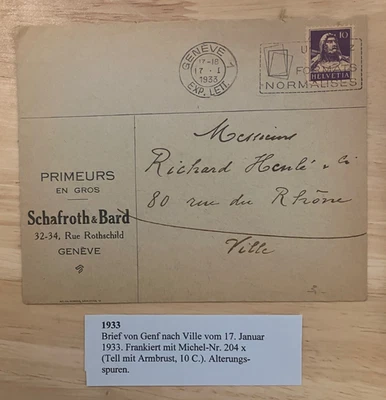 GENÈVE 1
17-18
17·I
1933
EXP. LETT.
U
FORMATS
NORMALISES
10
HELVETIA
PRIMEURS
EN GROS
Schafroth & Bard
32-34, Rue Rothschild
GENÈVE
Messieurs
Richard Henlé & Cie
80 rue du Rhône
Ville
1933
Brief von Genf nach Ville vom 17. Januar
1933. Frankiert mit Michel-Nr. 204 x
(Tell mit Armbrust, 10 C.). Alterungs-
spuren.